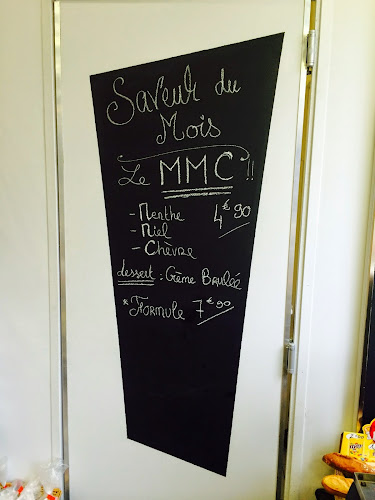 Saveur du
Mois
Le MMC !!
- Menthe 4€90
- Miel
- Chèvre
dessert : Crème Brulée
* Formule 7€90